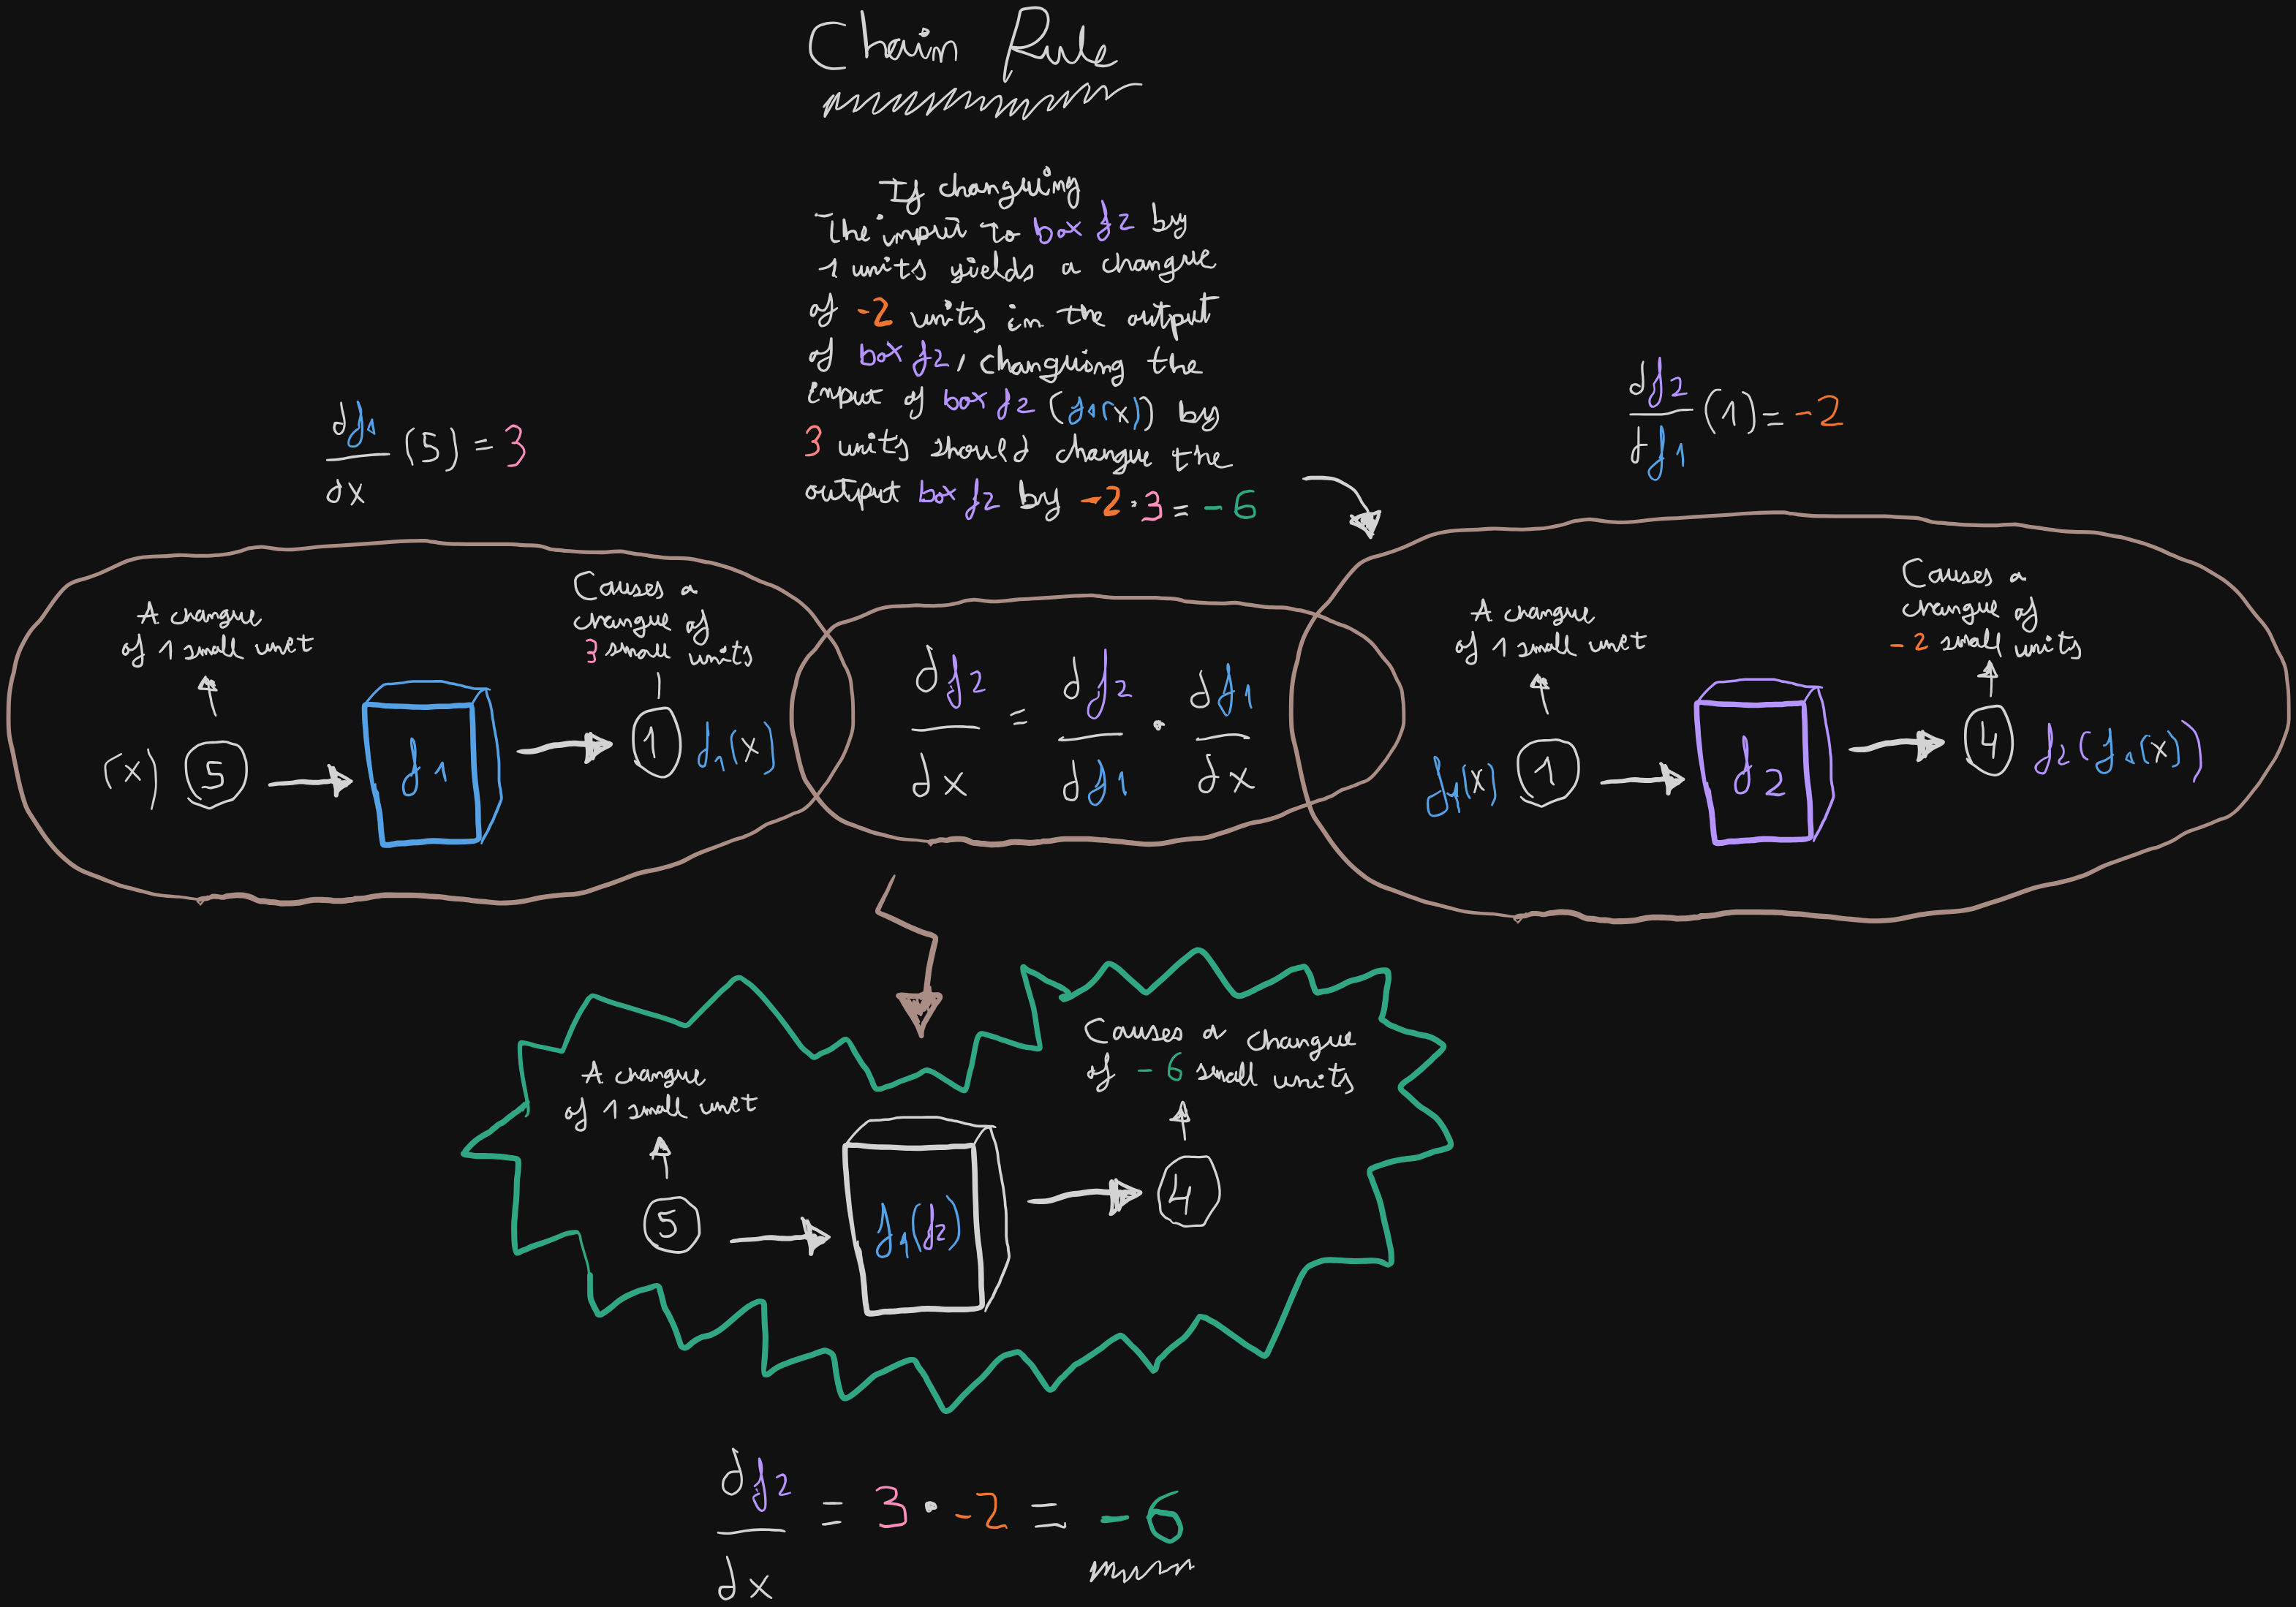 Chain Rule
If changuing
The input to box f2 by
1 units yields a changue
of -2 units in the output
of box f2, changuing the
input of box f2 (f1(x)) by
3 units should changue the
output box f2 by -2 · 3 = -6
df1
dx
(5) = 3
df2
df1
(1) = -2
A changue
of 1 small unit
Causes a
changue of
3 small units
(x) 5
f1
1 f1(x)
df2
dx
=
df2
df1
·
df1
dx
A changue
of 1 small unit
Causes a
changue of
-2 small units
f1(x) 1
f2
4 f2(f1(x))
A changue
of 1 small unit
Causes a changue
of -6 small units
5
f1(f2)
4
df2
dx
= 3 · -2 = -6